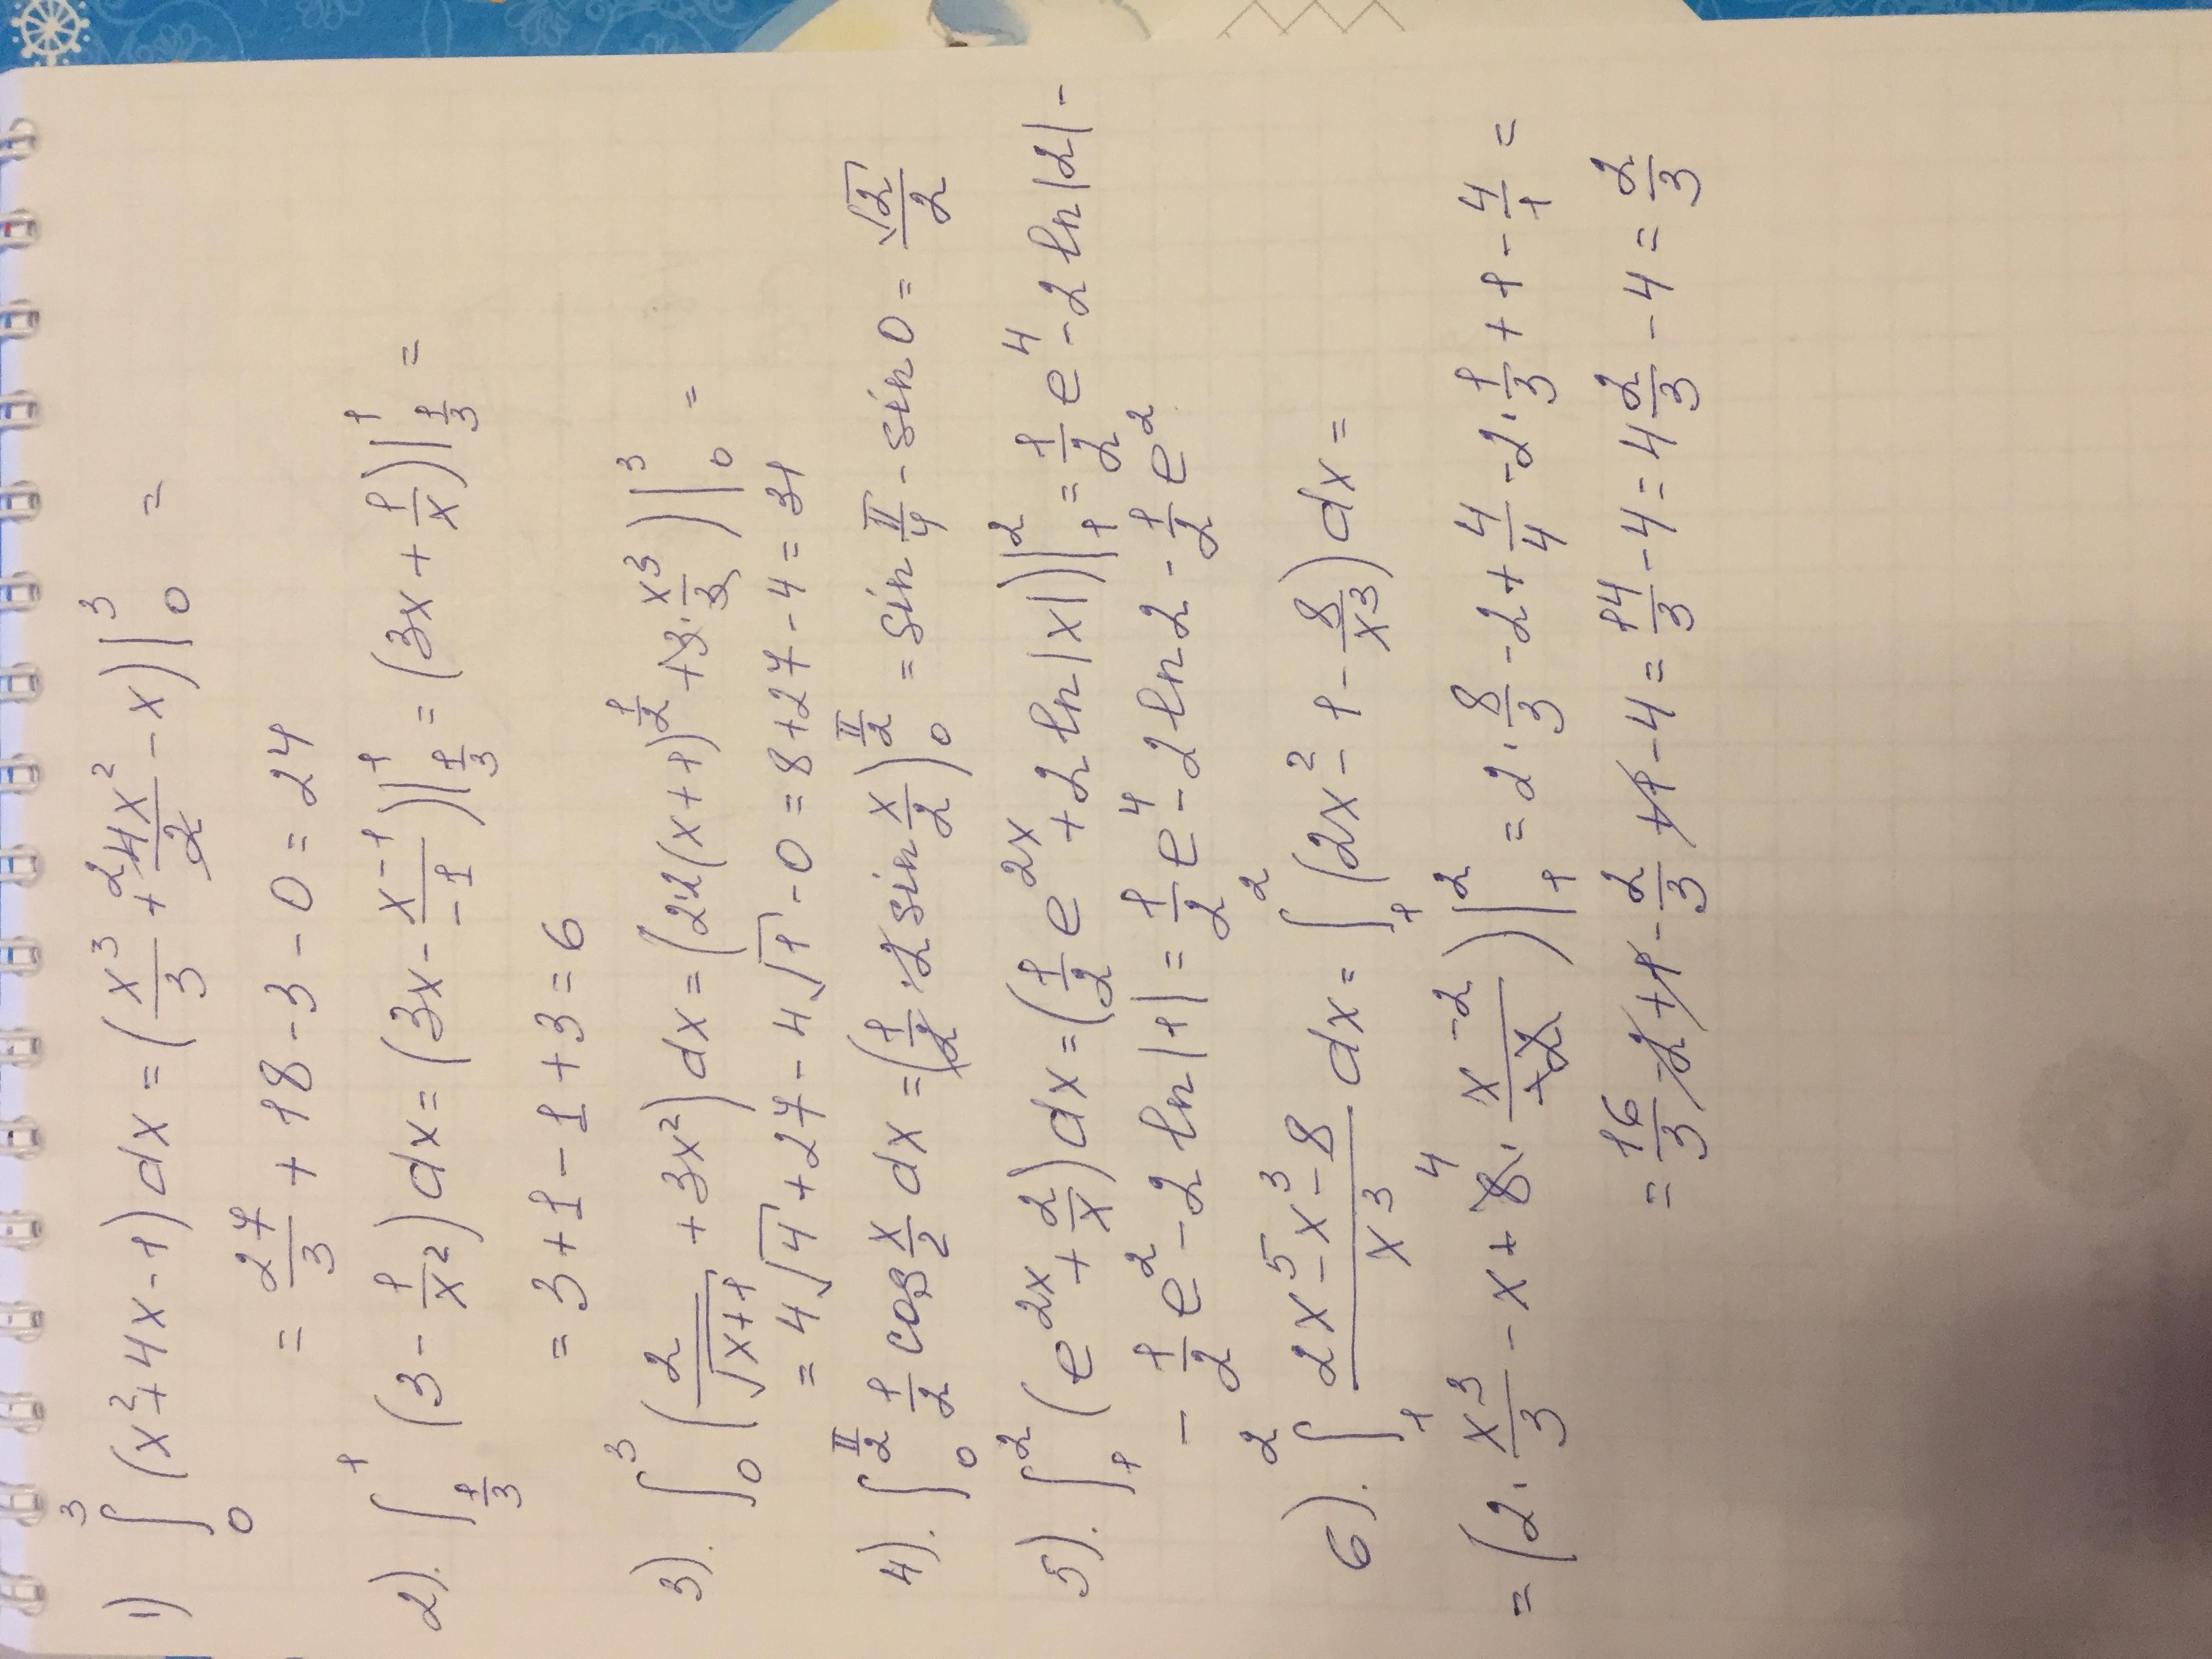 1) ∫₀³ (x² + 4x - 1) dx = (x³/3 + 4x²/2 - x) |₀³ =
= 27/3 + 18 - 3 - 0 = 24
2). ∫_{1/3}^1 (3 - 1/x²) dx = (3x - x⁻¹/-1) |_{1/3}^1 = (3x + 1/x) |_{1/3}^1 =
= 3 + 1 - 1 + 3 = 6
3). ∫₀³ (2/√(x+1) + 3x²) dx = (2·2(x+1)^{1/2} + 3·x³/3) |₀³ =
= 4√4 + 27 - 4√1 - 0 = 8 + 27 - 4 = 31
4). ∫₀^{π/2} 1/2 cos x/2 dx = (1/2 · 2 sin x/2)₀^{π/2} = sin π/4 - sin 0 = √2/2
5). ∫₁² (e^{2x} + 2/x) dx = (1/2 e^{2x} + 2 ln |x|) |₁² = 1/2 e⁴ - 2 ln |2| -
- 1/2 e² - 2 ln |1| = 1/2 e⁴ - 2 ln 2 - 1/2 e²
6). ∫₁² (2x⁵ - x³ - 8)/x³ dx = ∫₁² (2x² - 1 - 8/x³) dx =
= (2 · x³/3 - x + 8 · x⁻²/2) |₁² = 2 · 8/3 - 2 + 4/4 - 2 · 1/3 + 1 - 4/1 =
= 16/3 - 2 + 1 - 2/3 + 1 - 4 = 14/3 - 4 = 4 2/3 - 4 = 2/3